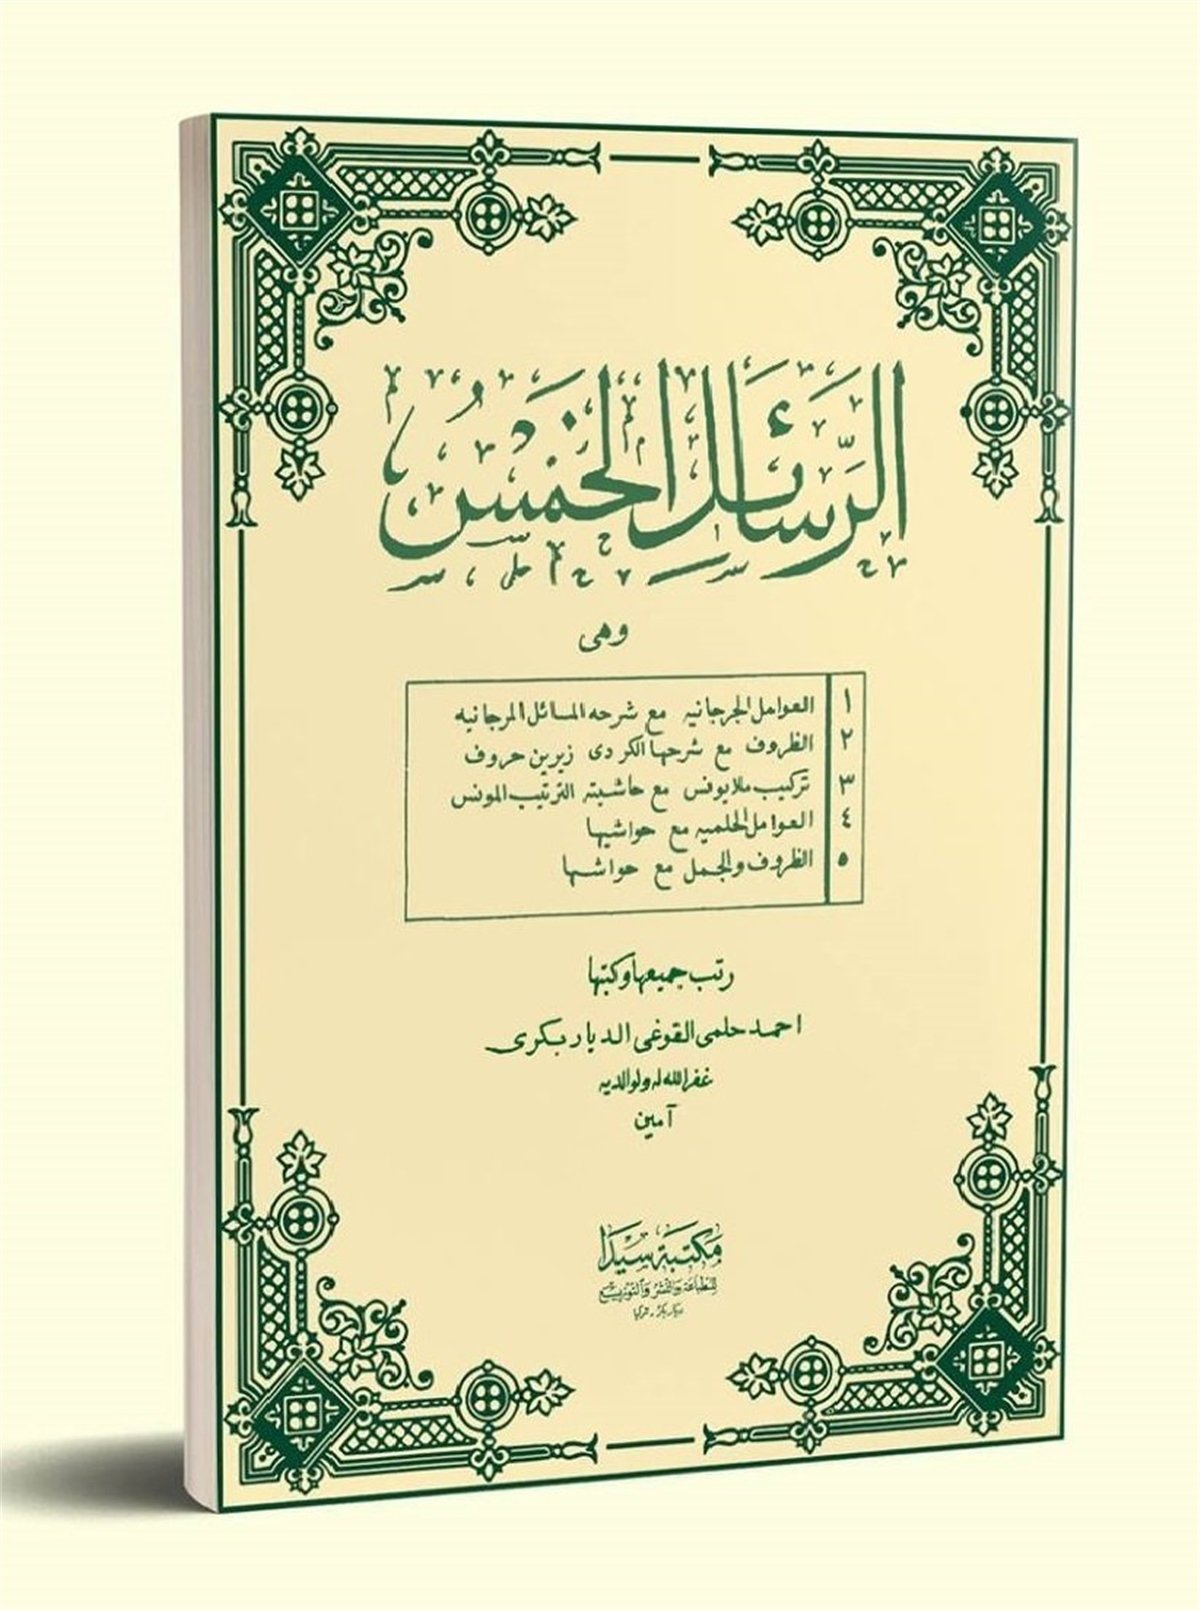 الرَّسَائِلِ الخَمْسُ
وهى
١ العوامل الجرجانيه مع شرحه المسائل المرجانيه
٢ الظروف مع شرحها الكردى زيرين حروف
٣ تركيب ملايونس مع حاشيته الترتيب المونس
٤ العوامل الحلميه مع حواشيها
٥ الظروف والجمل مع حواشها
رتب جميعها وكتبها
احمد حلمى القوغى الديار بكرى
غفر الله له ولوالديه
آمين
مكتبة سيدا
للطباعة والنشر والتوزيع
ديار بكر - تركيا